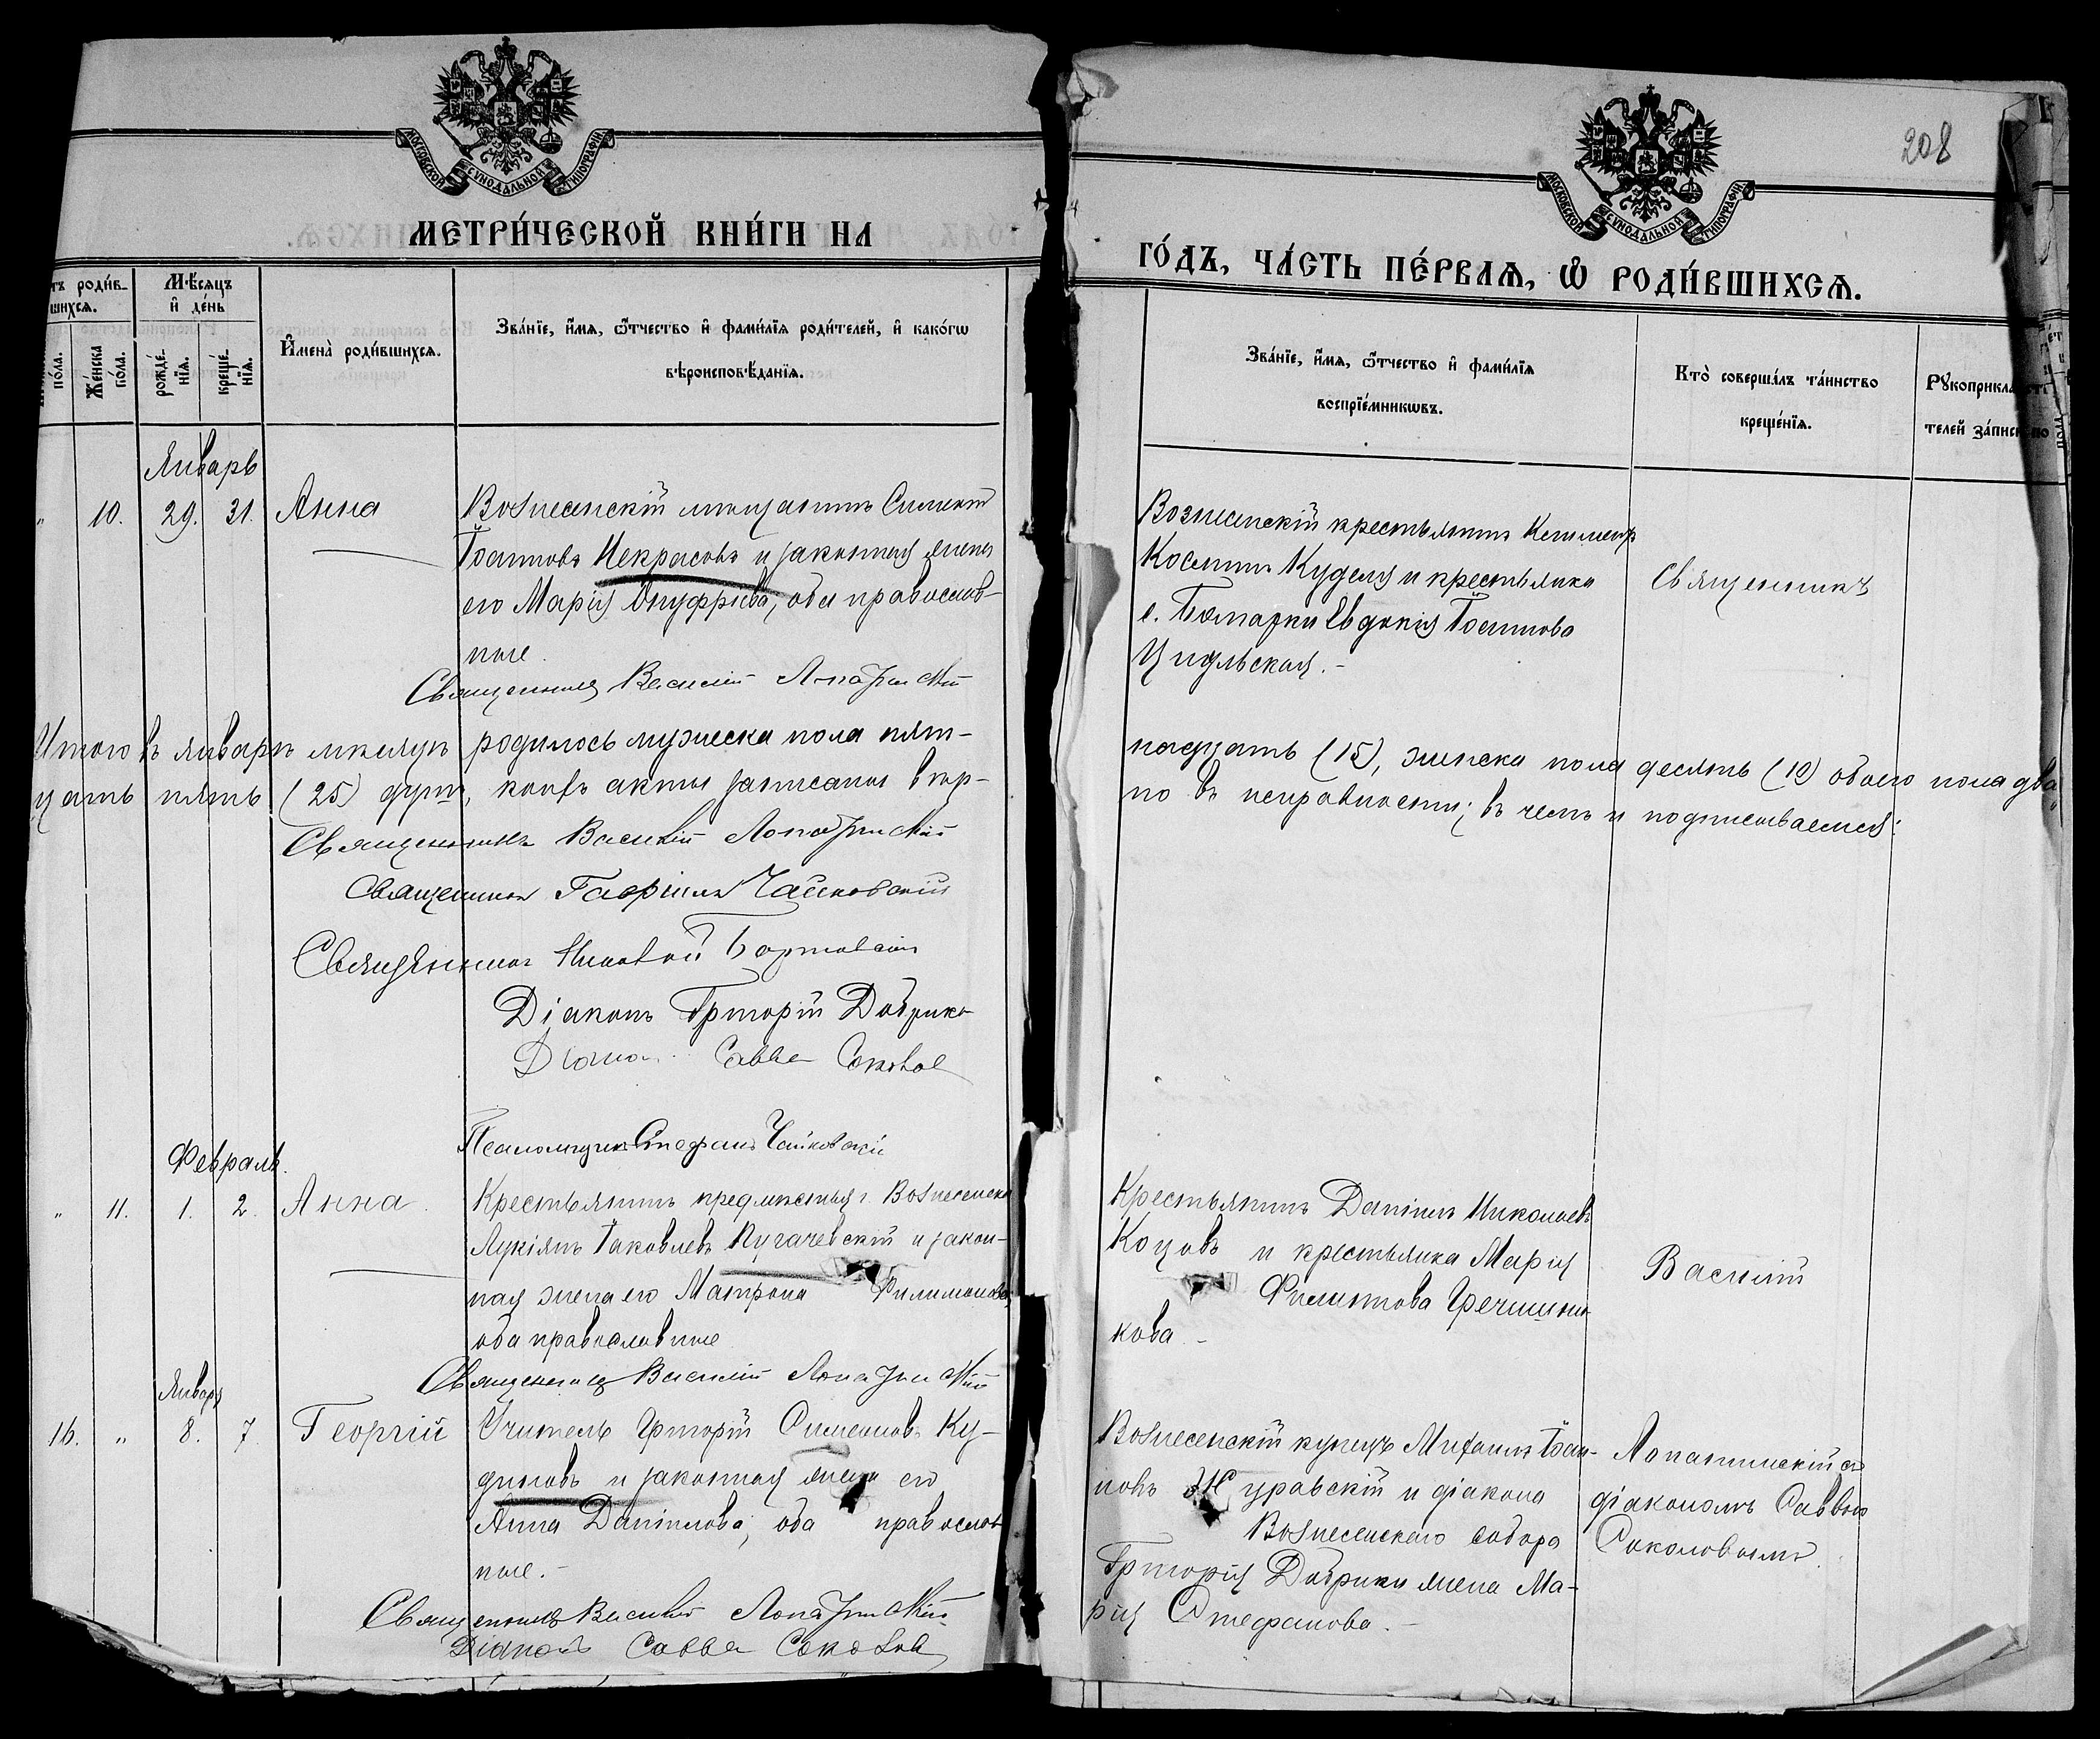 МОСКОВСКОЙ СѴНОДАЛЬНОЙ ТИПОГРАФІИ
МЕТРИ́ЧЕСКОЙ КНИ́ГИ НА
тъ роди́в-
шихсѧ.
Мѣ́сѧцъ
и҆ де́нь
И҆мена̀ роди́вшихсѧ.
Зва́нїе, и҆́мѧ, ѻ҆́тчество и҆ фами́лїѧ роди́телей, и҆ како́гѡ
вѣроисповѣ́данїѧ.
по́ла.
Же́нска
по́ла.
рожде́-
нїѧ.
креще́-
нїѧ.
Январь
" 10. 29. 31. Анна
Вознесенскій мѣщанинъ Симеонъ
Іоанновъ Некрасовъ и законная жена
его Марія Онуфріева, оба православ-
ные.
Священникъ Василій Лопатинскій
Итого въ январѣ мѣсяцѣ родилось мужеска пола пят-
цать пять (25) душъ, коихъ акты записаны вѣр-
Священникъ Василій Лопатинскій
Священникъ Гавріилъ Чайковскій
Священникъ Николай
Діаконъ Григорій Добрико
Діаконъ Савва Соколов
Псаломщикъ Стефанъ Чайковскій
Февраль.
" 11. 1. 2. Анна.
Крестьянинъ предмѣстья г. Вознесенска
Лукіянъ Іаковлевъ Пугачевскій и закон-
ная жена его Матрона Филимонова,
оба православные
Священникъ Василій Лопатинскій
Январь
16. " 8. 7. Георгій
Учитель Григорій Симеоновъ Ку-
диновъ и законная жена его
Анна Даніилова, оба православ-
ные.-
Священникъ Василій Лопатинскій
Діаконъ Савва Соколов
208
МОСКОВСКОЙ СѴНОДАЛЬНОЙ ТИПОГРАФІИ
ГО́ДЪ, ЧА́СТЬ ПЕ́РВАѦ, Ѽ РОДИ́ВШИХСѦ.
Зва́нїе, и҆́мѧ, ѻ҆́тчество и҆ фами́лїѧ
воспрїе́мникѡвъ.
Кто̀ соверша́лъ та́инство
креще́нїѧ.
Рꙋкоприкла
телей за́писи по
Вознесенскій крестьянинъ
Косминъ Куделя и крестьянка
с. Евдокія Іоаннова
Цидульская.-
Священникъ
надцать (15), женска пола десять (10) обоего пола два
но въ исправности; въ чемъ и подписываемся:
Крестьянинъ Даніилъ Николаевъ
Коцовъ и крестьянка Марія
Филиппова Гречишни
кова.-
Василій
Вознесенскій купецъ Михаилъ Іоан-
новъ Журавскій и діакона
Вознесенскаго собора
Григорія Добрики жена Ма-
рія Стефанова.-
Лопатинскій съ
діакономъ Саввою
Соколовымъ.